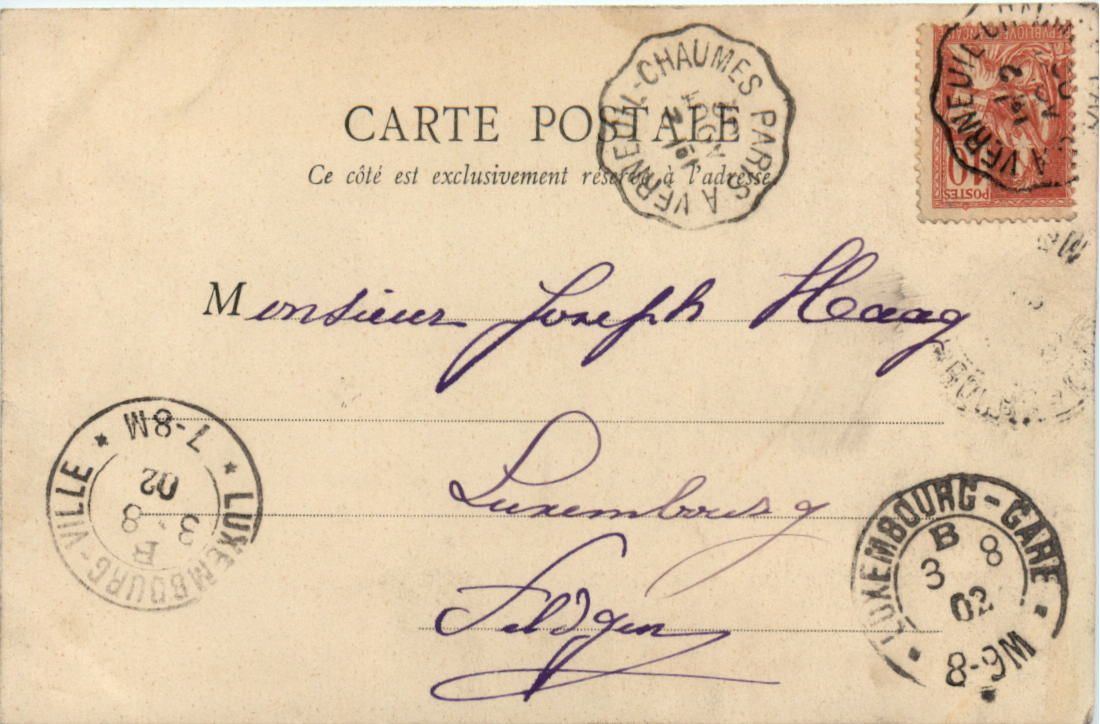 CARTE POSTALE
Ce côté est exclusivement réservé à l'adresse
VERNEUIL-CHAUMES PARIS A
2 AOUT 02
RÉPUBLIQUE FRANÇAISE
10
POSTES
A VERNEUIL-CH
02
Monsieur Joseph Haag
Luxembourg
Feldgen
LUXEMBOURG-VILLE
7-8M
3 8
02
E
LUXEMBOURG-GARE
B
3 8
02
8-9M